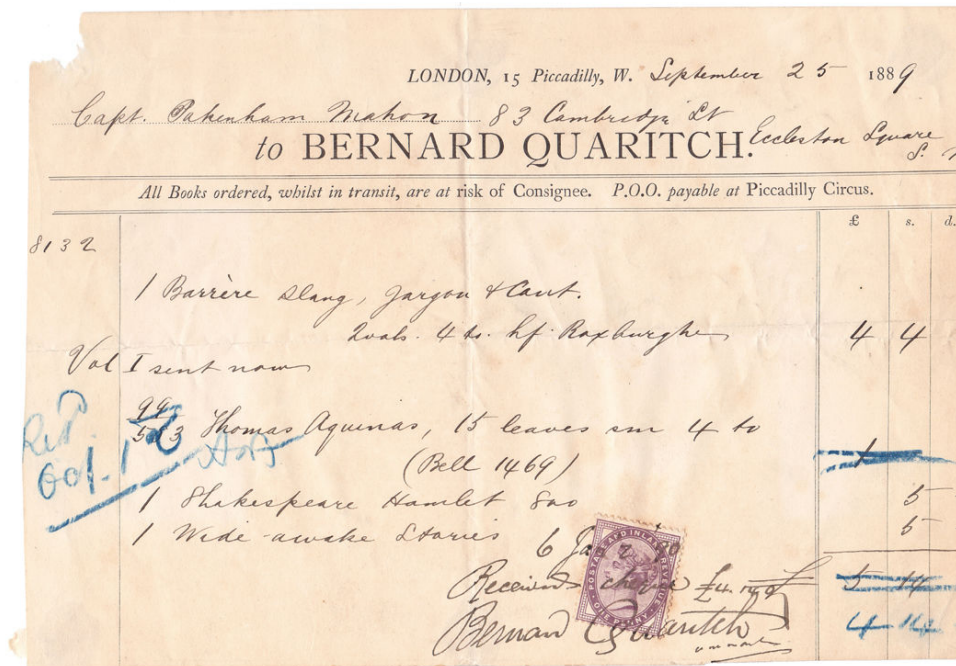 LONDON, 15 Piccadilly, W. September 25 1889
Capt. Pakenham Mahon 83 Cambridge St
to BERNARD QUARITCH. Eccleston Square
S.
All Books ordered, whilst in transit, are at risk of Consignee. P.O.O. payable at Piccadilly Circus.
£ s. d.
8132
1 Barrère Slang, Jargon & Cant.
2 vols. 4to. hf Roxburghe 4 4
Vol I sent now
99
Thomas Aquinas, 15 leaves sm 4to
Ret.
Oct. 1
(Bell 1469) 1
1 Shakespeare Hamlet 8vo 5
1 Wide-awake Stories 5
6 Ja
POSTAGE AND INLAND REVENUE
ONE PENNY
Received cheque £4.14.0 5 14
Bernard Quaritch 4 14